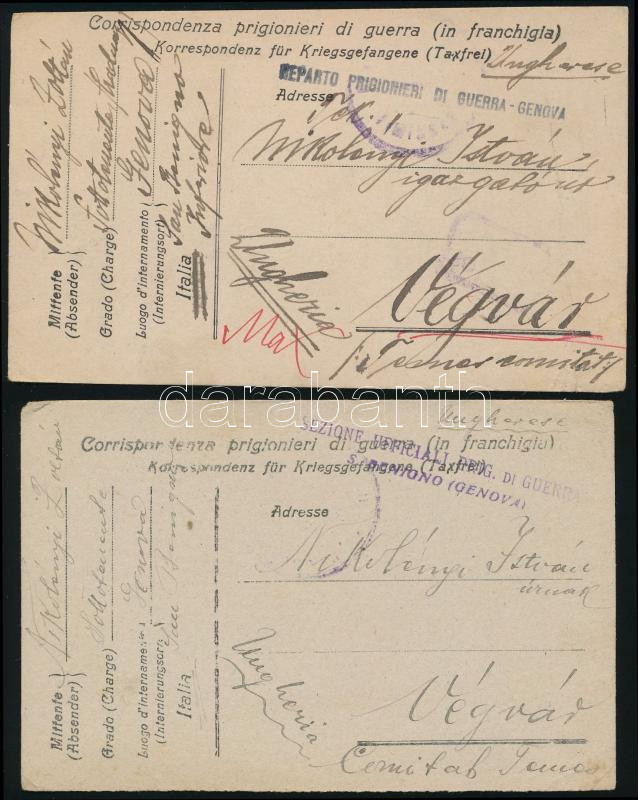 Corrispondenza prigionieri di guerra (in franchigia)
Korrespondenz für Kriegsgefangene (Taxfrei)
Ungherese
REPARTO PRIGIONIERI DI GUERRA-GENOVA
Adresse
Nikolényi István
igazgató úr
Végvár
Temes comitat
Ungheria
Mittente (Absender) Nikolényi Zoltán
Grado (Charge) Sottotenente
Luogo d'internamento (Internierungsort) Genova
San Benigno
Italia
darabanth
Ungherese
Corrispondenza prigionieri di guerra (in franchigia)
Korrespondenz für Kriegsgefangene (Taxfrei)
SEZIONE UFFICIALI PRIG. DI GUERRA
S. BENIGNO (GENOVA)
Adresse
Nikolényi István
úrnak
Végvár
Comitat Temes
Ungheria
Mittente (Absender) Nikolényi Zoltán
Grado (Charge) Sottotenente
Luogo d'internamento (Internierungsort) Genova
San Benigno
Italia